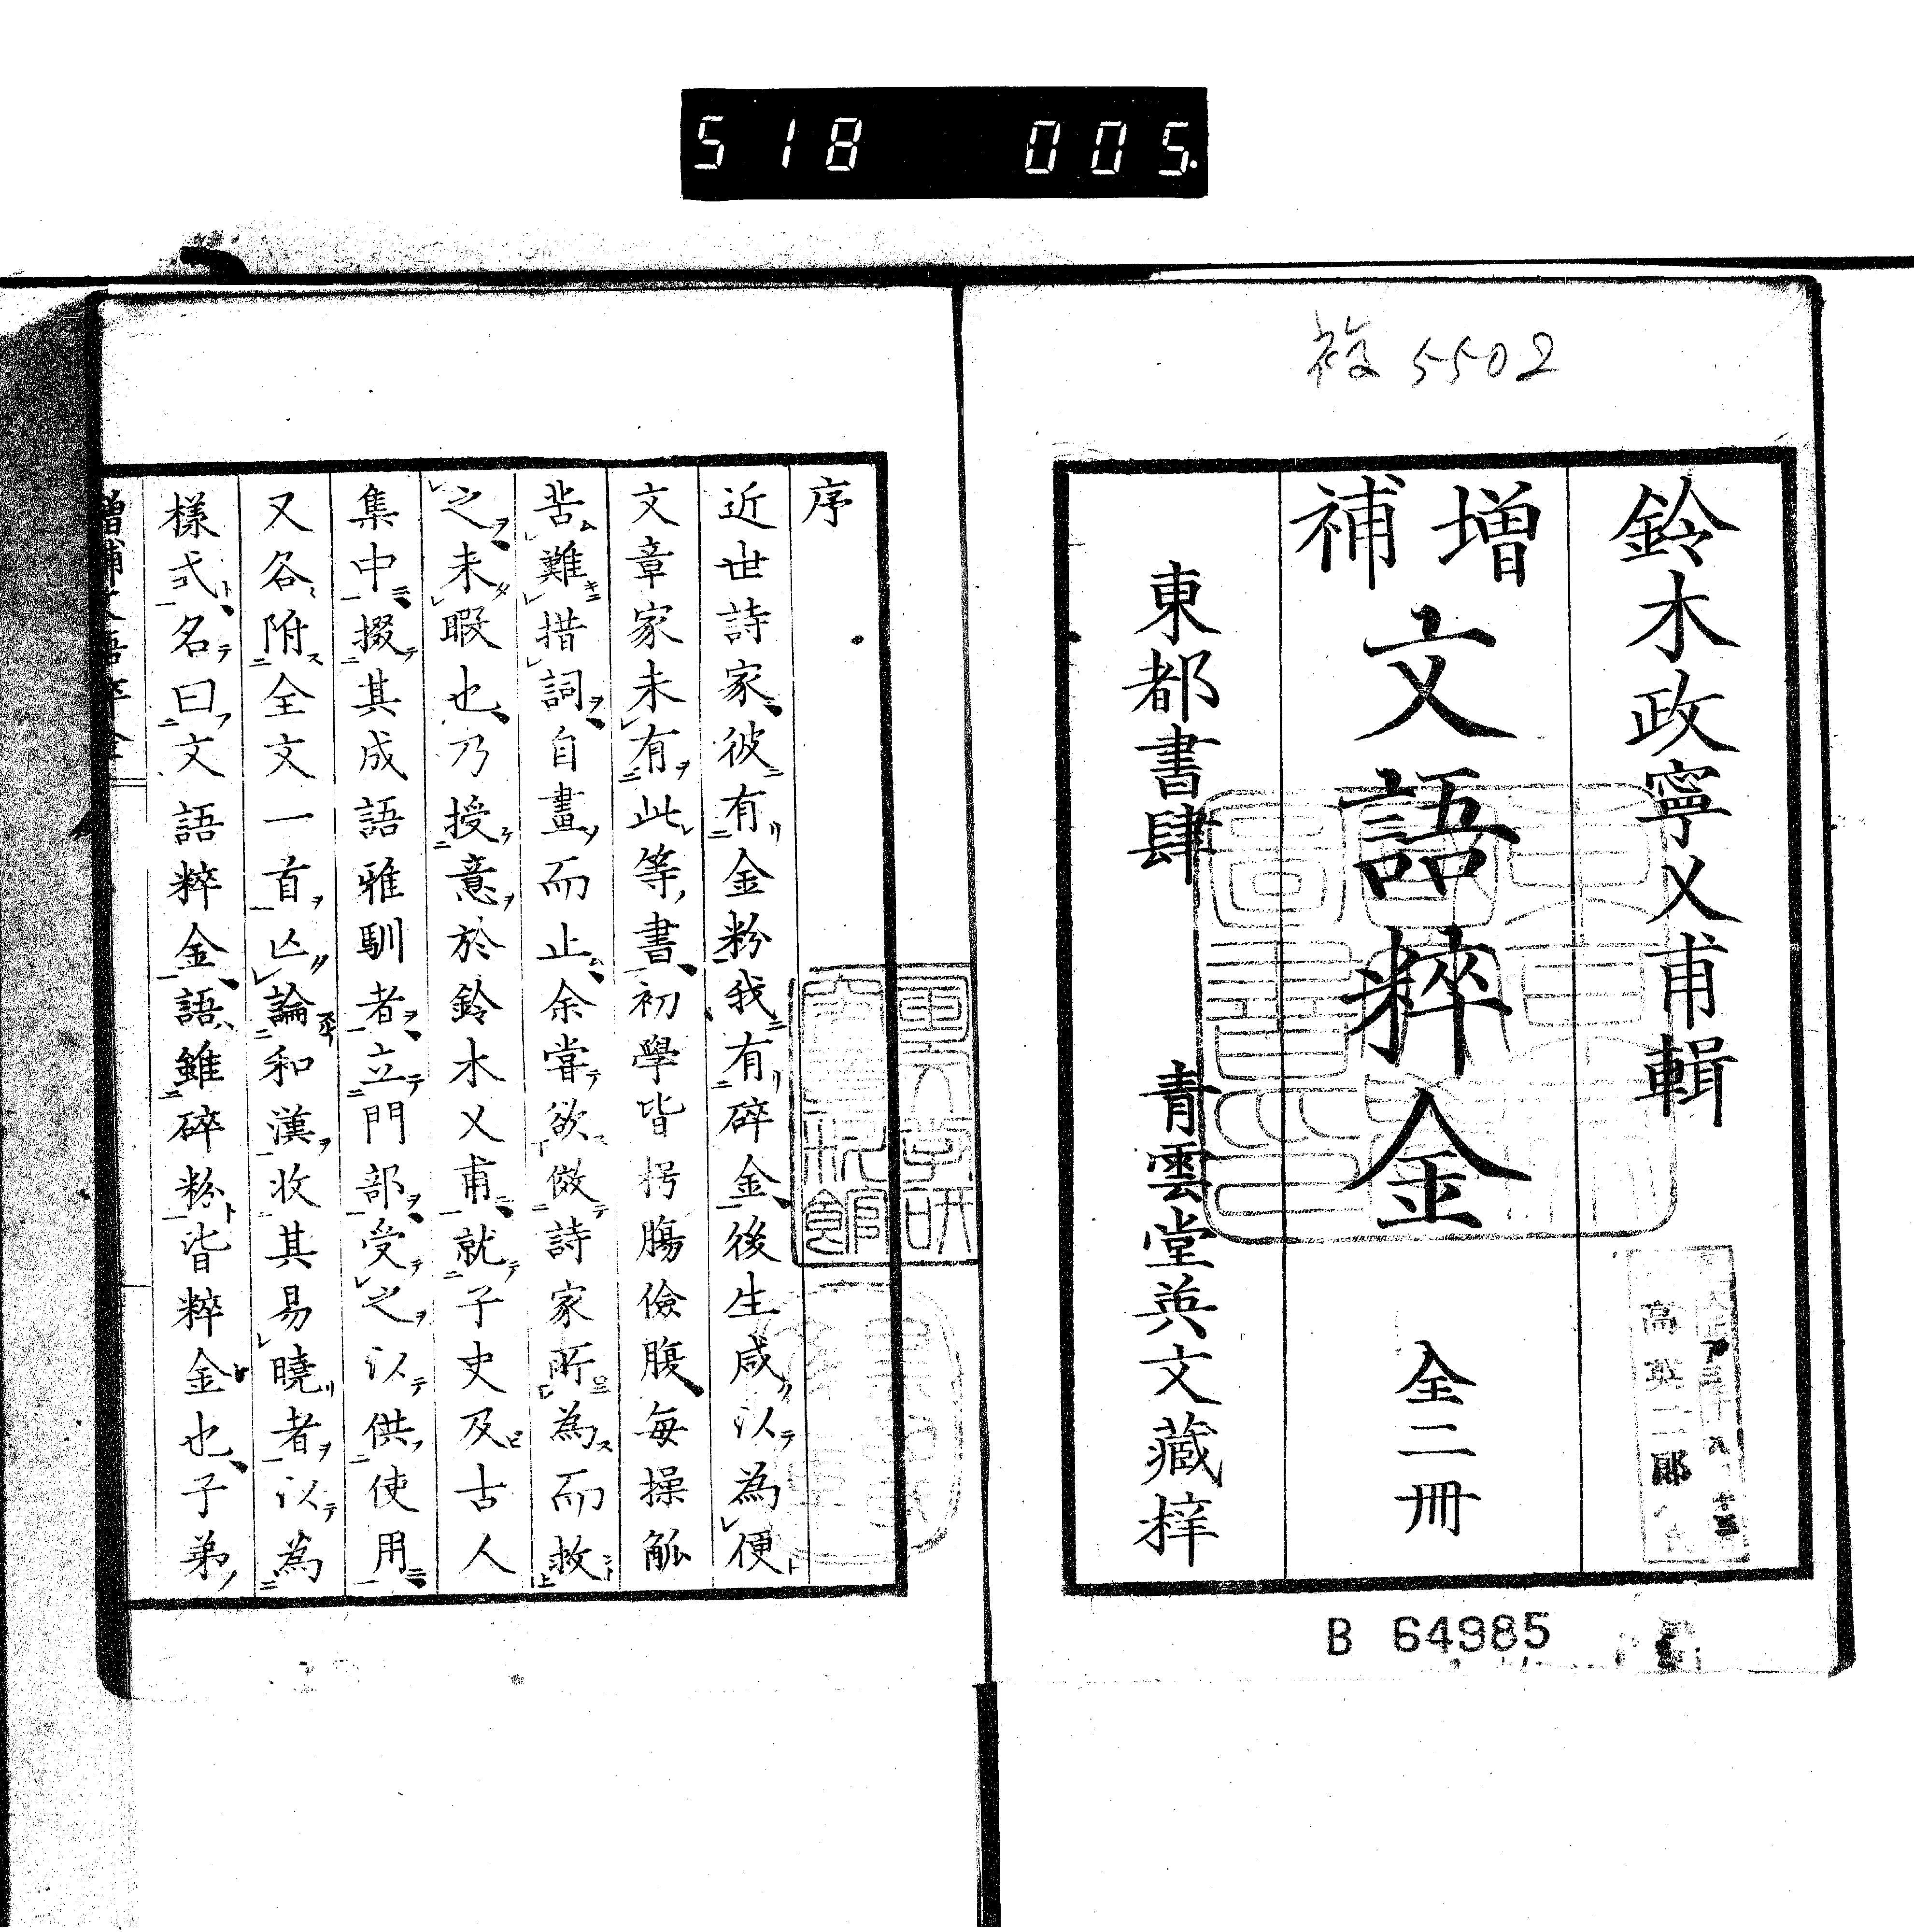 518 005.
複 5502
鈴木政寧乂甫輯
増補
文語粹金 全二冊
東都書肆 青雲堂英文藏梓
高英二郎
B 64985
序
近世詩家彼有金粉我有碎金後生咸以為便
文章家未有此等書初學皆枵腸儉腹每操觚
苦難措詞自畫而止余嘗欲倣詩家所為而救
之未暇也乃授意於鈴木乂甫就子史及古人
集中掇其成語雅馴者立門部受之以供使用
又各附全文一首亡論和漢收其易曉者以為
樣式名曰文語粹金語雖碎粉皆粹金也子弟